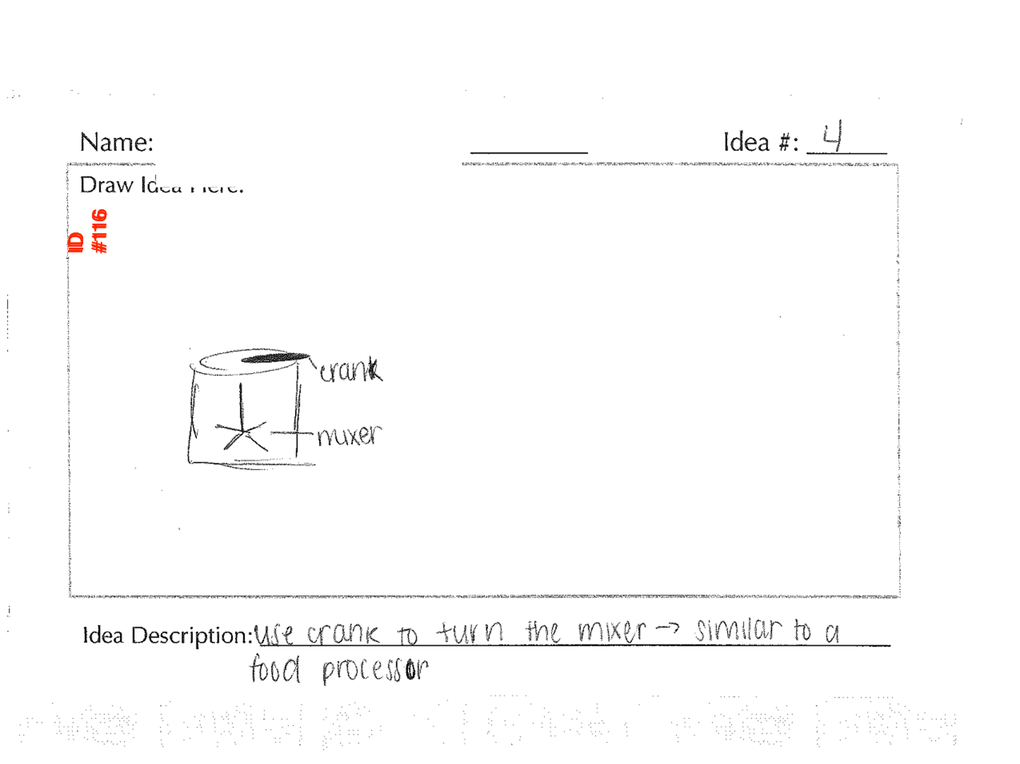 Name:
Idea #: 4
Draw Idea Here:
ID
#116
crank
mixer
Idea Description: use crank to turn the mixer → similar to a
food processor